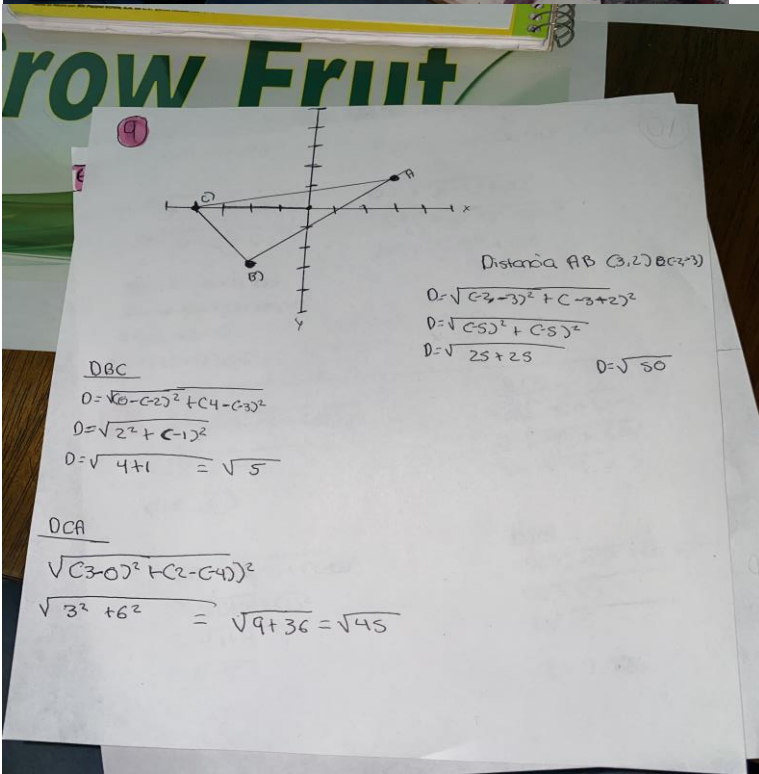 row Frut
9
A
C)
x
B)
y
Distancia AB (3,2) B(-2,-3)
D=√(-2,-3)² + (-3+2)²
D=√(-5)² + (-5)²
D=√ 25 + 25
D=√50
DBC
D=√(0-(-2)² + (4-(-3)²
D=√2² + (-1)²
D=√ 4+1 = √5
DCA
√(3-0)² + (2-(-4))²
√3² + 6² = √9+36 = √45